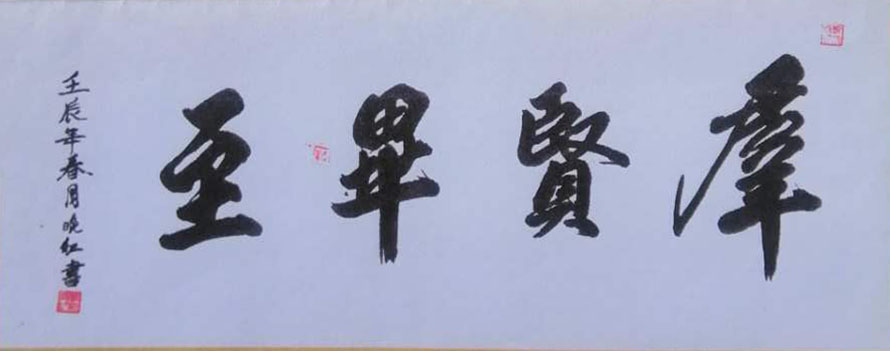 羣賢畢至
壬辰年春月晚紅書